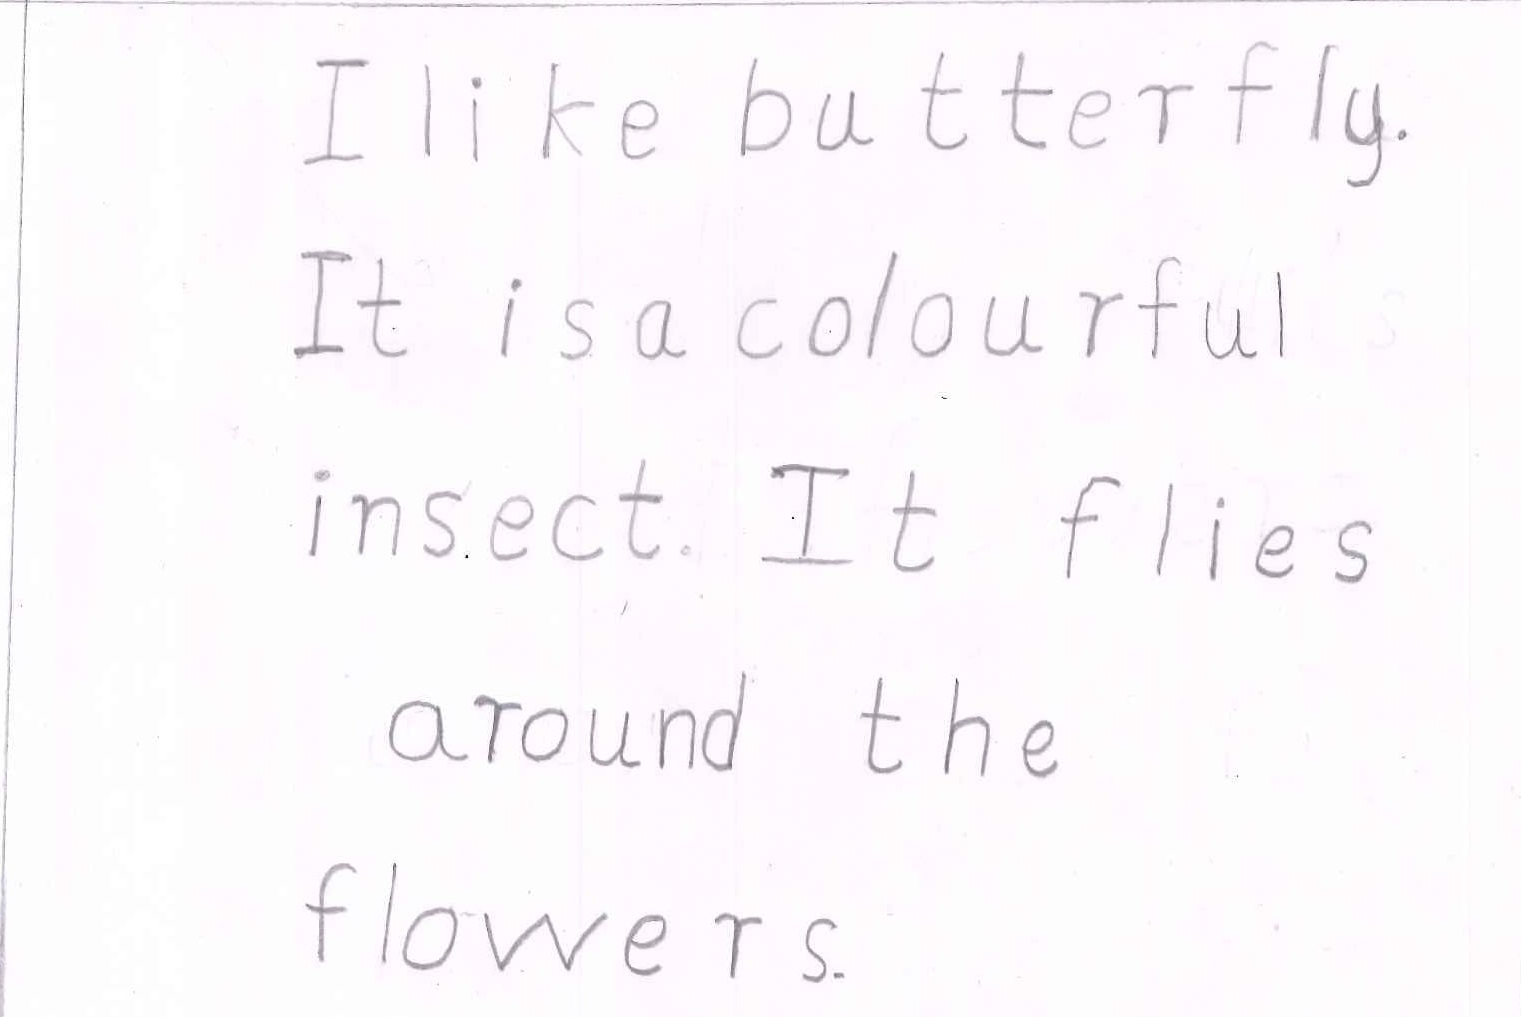 I like butterfly.
It is a colourful
insect. It flies
around the
flowers.